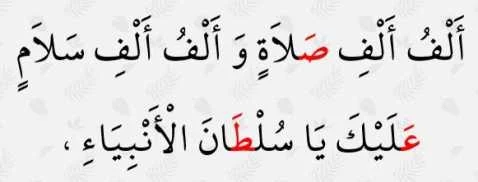 أَلْفُ أَلْفِ صَلاَةٍ وَ أَلْفُ أَلْفِ سَلاَمٍ
عَلَيْكَ يَا سُلْطَانَ الْأَنْبِيَاءِ ،